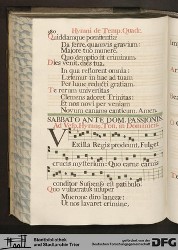 Hymni de Temp. Quadr.
Quiddamque pœnitentiæ:
Da ferre, quamvis gravium:
Majore tuo munere,
Quo demptio sit criminum.
Dies venit, dies tua,
In qua reflorent omnia:
Lætemur in hac ad tuam
Per hanc reducti gratiam.
Te rerum universitas
Clemens adoret Trinitas
Et nos novi per veniam
Novum canamus canticum. Amen.
SABBATO ANTE DOM. PASSIONIS
Ad Vesp. Hymnus, Ton. in Dominicis
Vexilla Regis prodeunt, Fulget
crucis mysterium: Quo carne carnis
conditor Suspensus est patibulo.
Quo vulneratus insuper
Mucrone diro lanceæ:
Ut nos lavaret crimine,
Stadtbibliothek
und Stadtarchiv Trier
gefördert von der
DFG